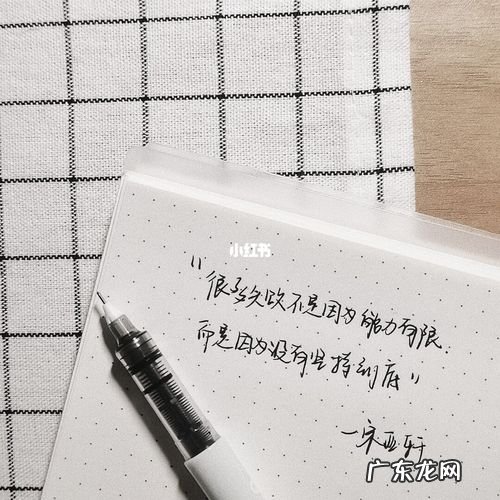 小红书
"很多失败不是因为能力有限
而是因为没有坚持到底"
—宋亚轩
广东龙网